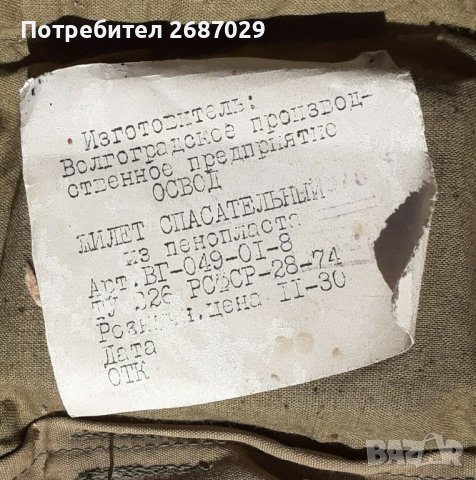 Потребител 2687029
Изготовитель:
Волгоградское производ-
ственное предприятие
ОСВОД
ЖИЛЕТ СПАСАТЕЛЬНЫЙ
из пенопласта
Арт.ВГ-049-01-8
ТУ 226 РСФСР-28-74
Рознич.цена 11-30
Дата
ОТК
BAZAR